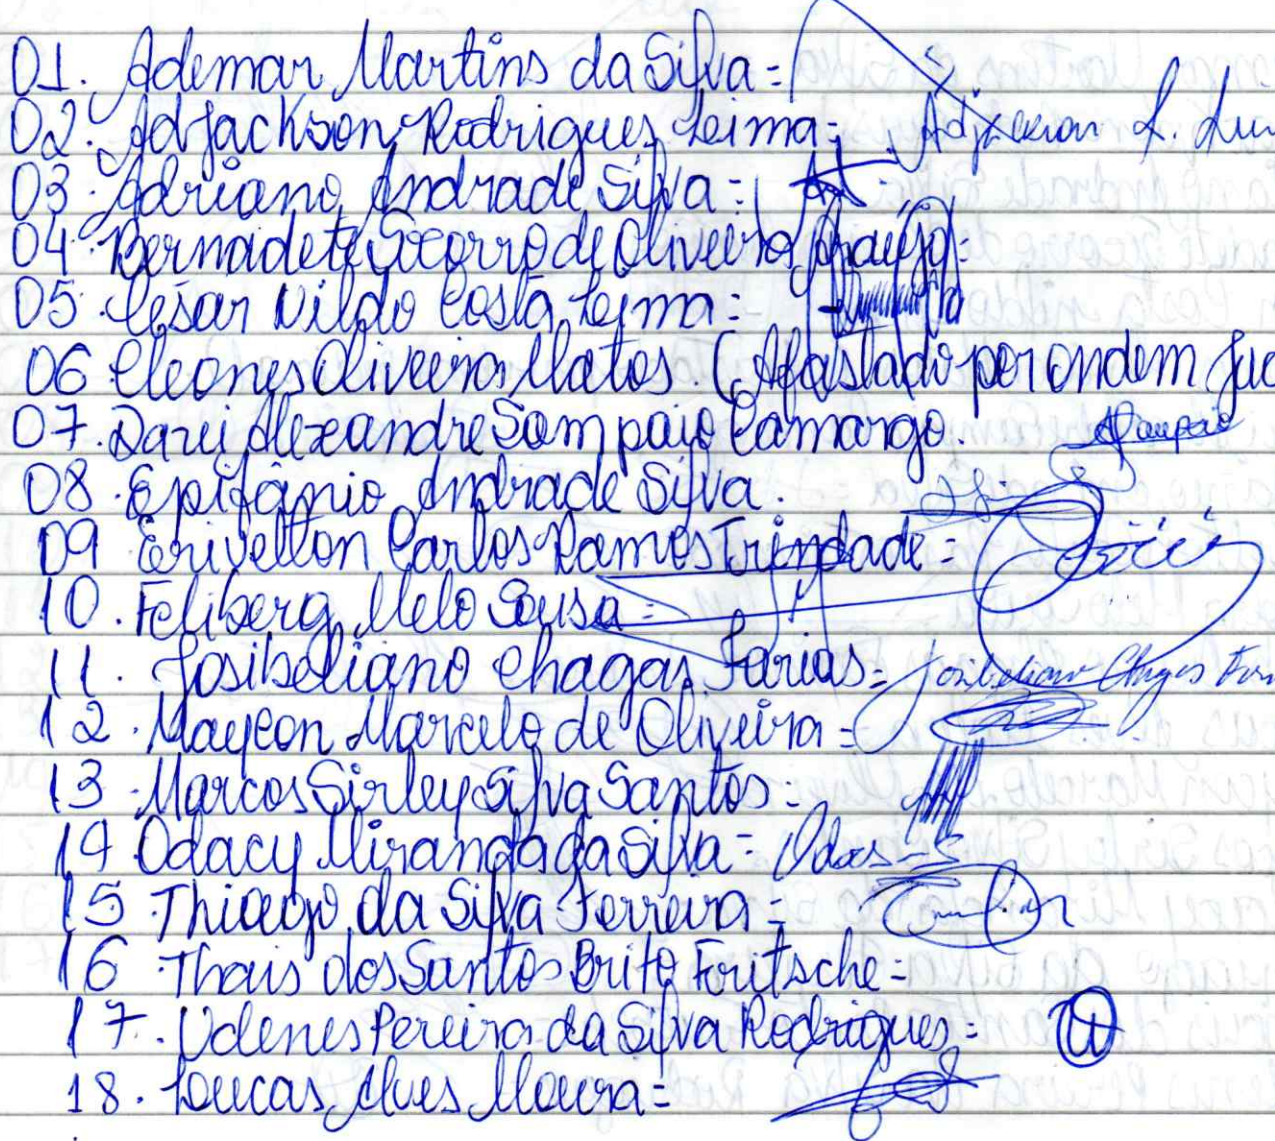 01. Ademar Martins da Silva =
02. Adjackson Rodrigues Leima = Adjackson R.
03. Adriano Andrade Silva =
04. Bernadete Socorro de Oliveira Araujo =
05. César Nildo Costa Leima =
06 Cleones Oliveira Matos. (Afastado por ordem Jud
07. Darci Alexandre Sampaio Camargo. Sampaio
08. Epifânio Andrade Silva.
09 Erivelton Carlos Ramos Trindade =
10. Feliberg Melo Sousa =
11. Josibeliano Chagas Farias = Josibeliano Chagas Far
12. Maycon Marcelo de Oliveira =
13. Marcos Sirley Silva Santos =
14 Odacy Miranda da Silva = Odacy
15. Thiago da Silva Ferreira =
16 Thais dos Santos Brito Foritsche =
17. Udenes Pereira da Silva Rodrigues =
18. Loucas Alves Moura =